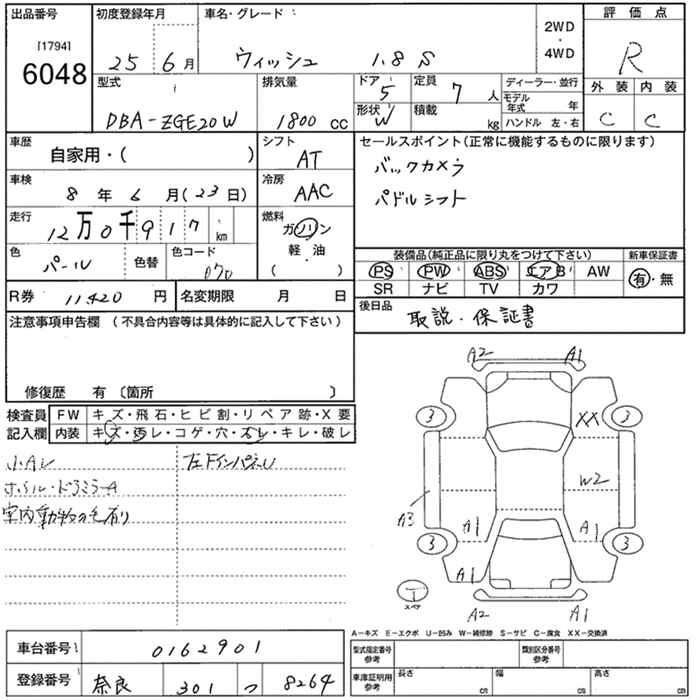 出品番号 初度登録年月 車名・グレード 評価点
[1794]
6048
25 6月 ウィッシュ 1.8 S 2WD・4WD R
型式 排気量 ドア 5 定員 7人 ディーラー・並行 外装 内装
DBA-ZGE20W 1800cc 形状 W 積載 kg モデル年式 年 C C
ハンドル 左・右
車歴 自家用・( ) シフト AT セールスポイント(正常に機能するものに限ります)
車検 8年6月(23日) 冷房 AAC バックカメラ
パドルシフト
走行 12万0千917km 燃料 ガソリン・軽油 ( )
色 パール 色替 色コード 070
装備品(純正品に限り丸をつけて下さい) 新車保証書
PS PW ABS エアB AW 有・無
SR ナビ TV カワ
R券 11,420円 名変期限 月 日
後日品 取説・保証書
注意事項申告欄 (不具合内容等は具体的に記入して下さい)
修復歴 有〔箇所 〕
検査員記入欄 FW キズ・飛石・ヒビ割・リペア跡・X要
内装 キズ・汚レ・コゲ・穴・スレ・キレ・破レ
小Aレ
ホイル・ドアミラーA
室内動物の毛有り
A2 A1
3 3
XX
W2
A3
A1 A1
3 3
A1
スペア
A2 A1
A-キズ E-エクボ U-凹み W-補修跡 S-サビ C-腐食 XX-交換済
車台番号 0162901 型式指定番号 参考 類別区分番号 参考
登録番号 奈良 301 つ 8264 車庫証明用 参考 長さ cm 幅 cm 高さ cm